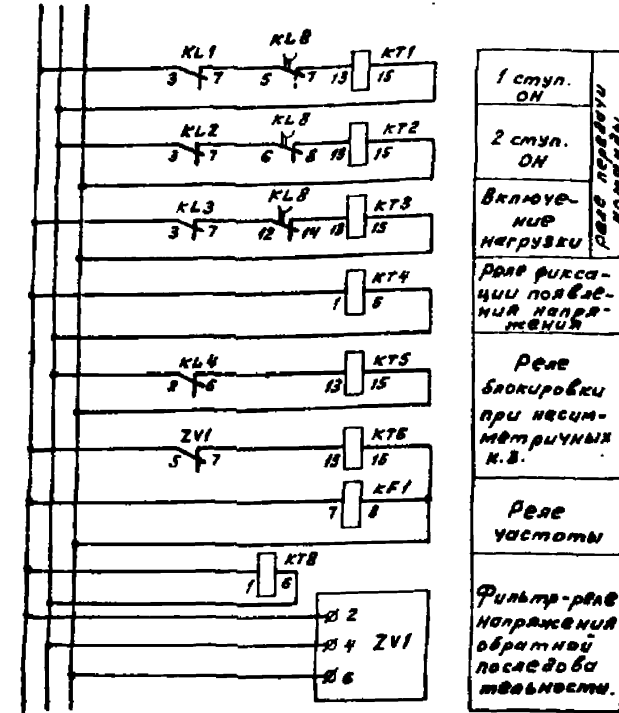 KL1 KL8 KT1
3 7 5 7 13 15
KL2 KL8 KT2
3 7 6 8 13 15
KL3 KL8 KT3
3 7 12 14 13 15
KT4
1 6
KL4 KT5
8 6 13 15
ZV1 KT6
5 7 15 16
KF1
7 8
KT8
1 6
2
4 ZV1
6
1 ступ.
ОН
2 ступ.
ОН
Включе-
ние
нагрузки
Реле передачи
команды
Реле фикса-
ции появле-
ния напря-
жения
Реле
блокировки
при несим-
метричных
к.з.
Реле
частоты
Фильтр-реле
напряжения
обратной
последова
тельности.